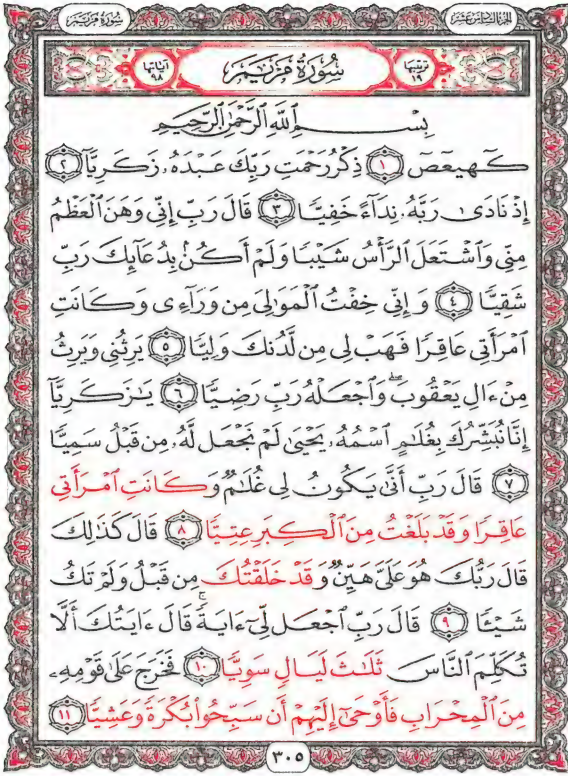 سُورَةُ مَرْيَمَ
الجزء السادس عشر
ترتيبها ١٩
سُورَةُ مَرْيَمَ
آياتها ٩٨
بِسْمِ ٱللَّهِ ٱلرَّحْمَٰنِ ٱلرَّحِيمِ
كٓهيعٓصٓ ١ ذِكْرُ رَحْمَتِ رَبِّكَ عَبْدَهُۥ زَكَرِيَّآ ٢
إِذْ نَادَىٰ رَبَّهُۥ نِدَآءً خَفِيًّا ٣ قَالَ رَبِّ إِنِّي وَهَنَ ٱلْعَظْمُ
مِنِّي وَٱشْتَعَلَ ٱلرَّأْسُ شَيْبًا وَلَمْ أَكُنۢ بِدُعَآئِكَ رَبِّ
شَقِيًّا ٤ وَإِنِّي خِفْتُ ٱلْمَوَٰلِىَ مِن وَرَآءِى وَكَانَتِ
ٱمْرَأَتِي عَاقِرًا فَهَبْ لِى مِن لَّدُنكَ وَلِيًّا ٥ يَرِثُنِى وَيَرِثُ
مِنْ ءَالِ يَعْقُوبَۖ وَٱجْعَلْهُ رَبِّ رَضِيًّا ٦ يَٰزَكَرِيَّآ
إِنَّا نُبَشِّرُكَ بِغُلَٰمٍ ٱسْمُهُۥ يَحْيَىٰ لَمْ نَجْعَل لَّهُۥ مِن قَبْلُ سَمِيًّا
٧ قَالَ رَبِّ أَنَّىٰ يَكُونُ لِى غُلَٰمٌ وَكَانَتِ ٱمْرَأَتِي
عَاقِرًا وَقَدْ بَلَغْتُ مِنَ ٱلْكِبَرِ عِتِيًّا ٨ قَالَ كَذَٰلِكَ
قَالَ رَبُّكَ هُوَ عَلَىَّ هَيِّنٌ وَقَدْ خَلَقْتُكَ مِن قَبْلُ وَلَمْ تَكُ
شَيْـًٔا ٩ قَالَ رَبِّ ٱجْعَل لِّىٓ ءَايَةًۚ قَالَ ءَايَتُكَ أَلَّا
تُكَلِّمَ ٱلنَّاسَ ثَلَٰثَ لَيَالٍ سَوِيًّا ١٠ فَخَرَجَ عَلَىٰ قَوْمِهِۦ
مِنَ ٱلْمِحْرَابِ فَأَوْحَىٰٓ إِلَيْهِمْ أَن سَبِّحُوا۟ بُكْرَةً وَعَشِيًّا ١١
٣٠٥